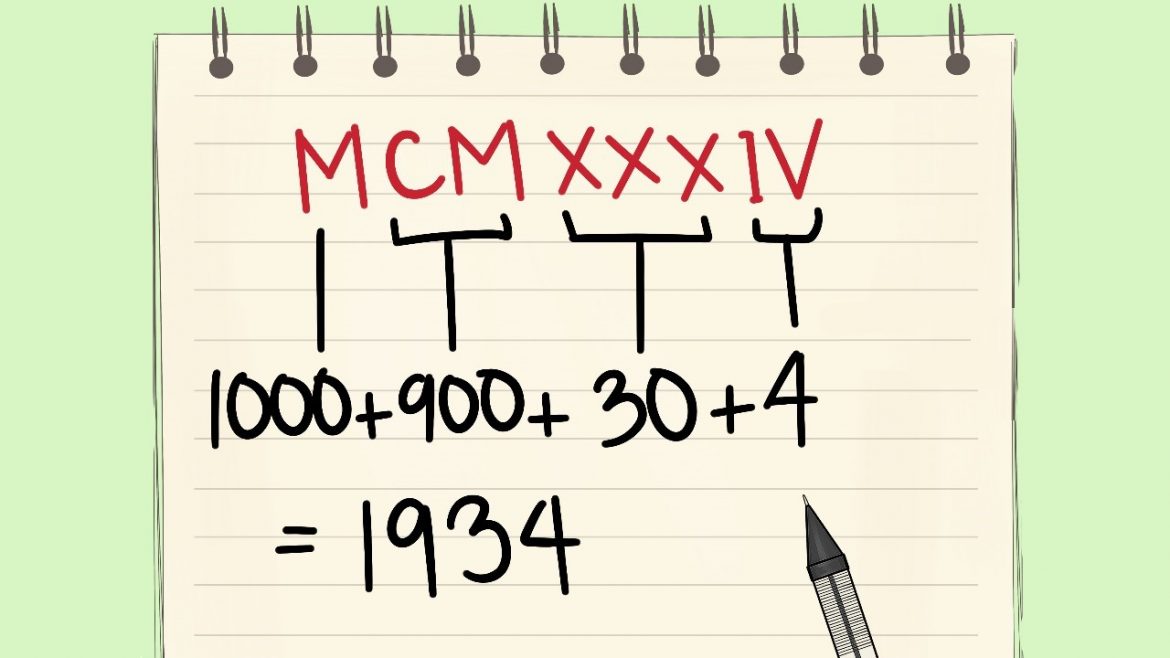 MCMXXXIV
1000+900+30+4
= 1934